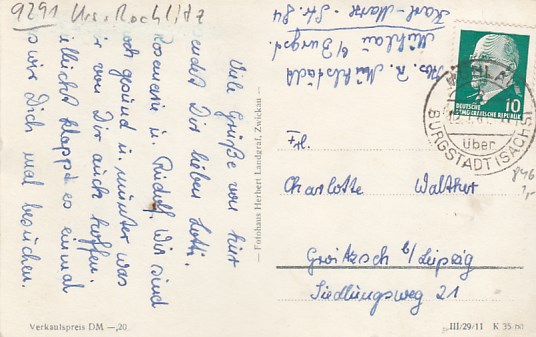 9291 Krs. Rochlitz
Viele Grüße von hier
sendet Dir lieben Lotti.
Rosemarie u. Rudolf. Wir sind
noch gesund u. munter was
wir von Dir auch hoffen.
Vielleicht klappt es einmal
das wir Dich mal besuchen.
— Fotohaus Herbert Landgraf, Zwickau —
Verkaufspreis DM —,20
Abs. R. Mühlstädt
Mühlau b/Burgst.
Karl-Marx-Str. 84
DEUTSCHE
DEMOKRATISCHE REPUBLIK
10
MÜHLAU
über
BURGSTÄDT (SACHS)
Frl.
Charlotte Walther
Groitzsch b/Leipzig
Siedlungsweg 21
846
III/29/11 K 35/60